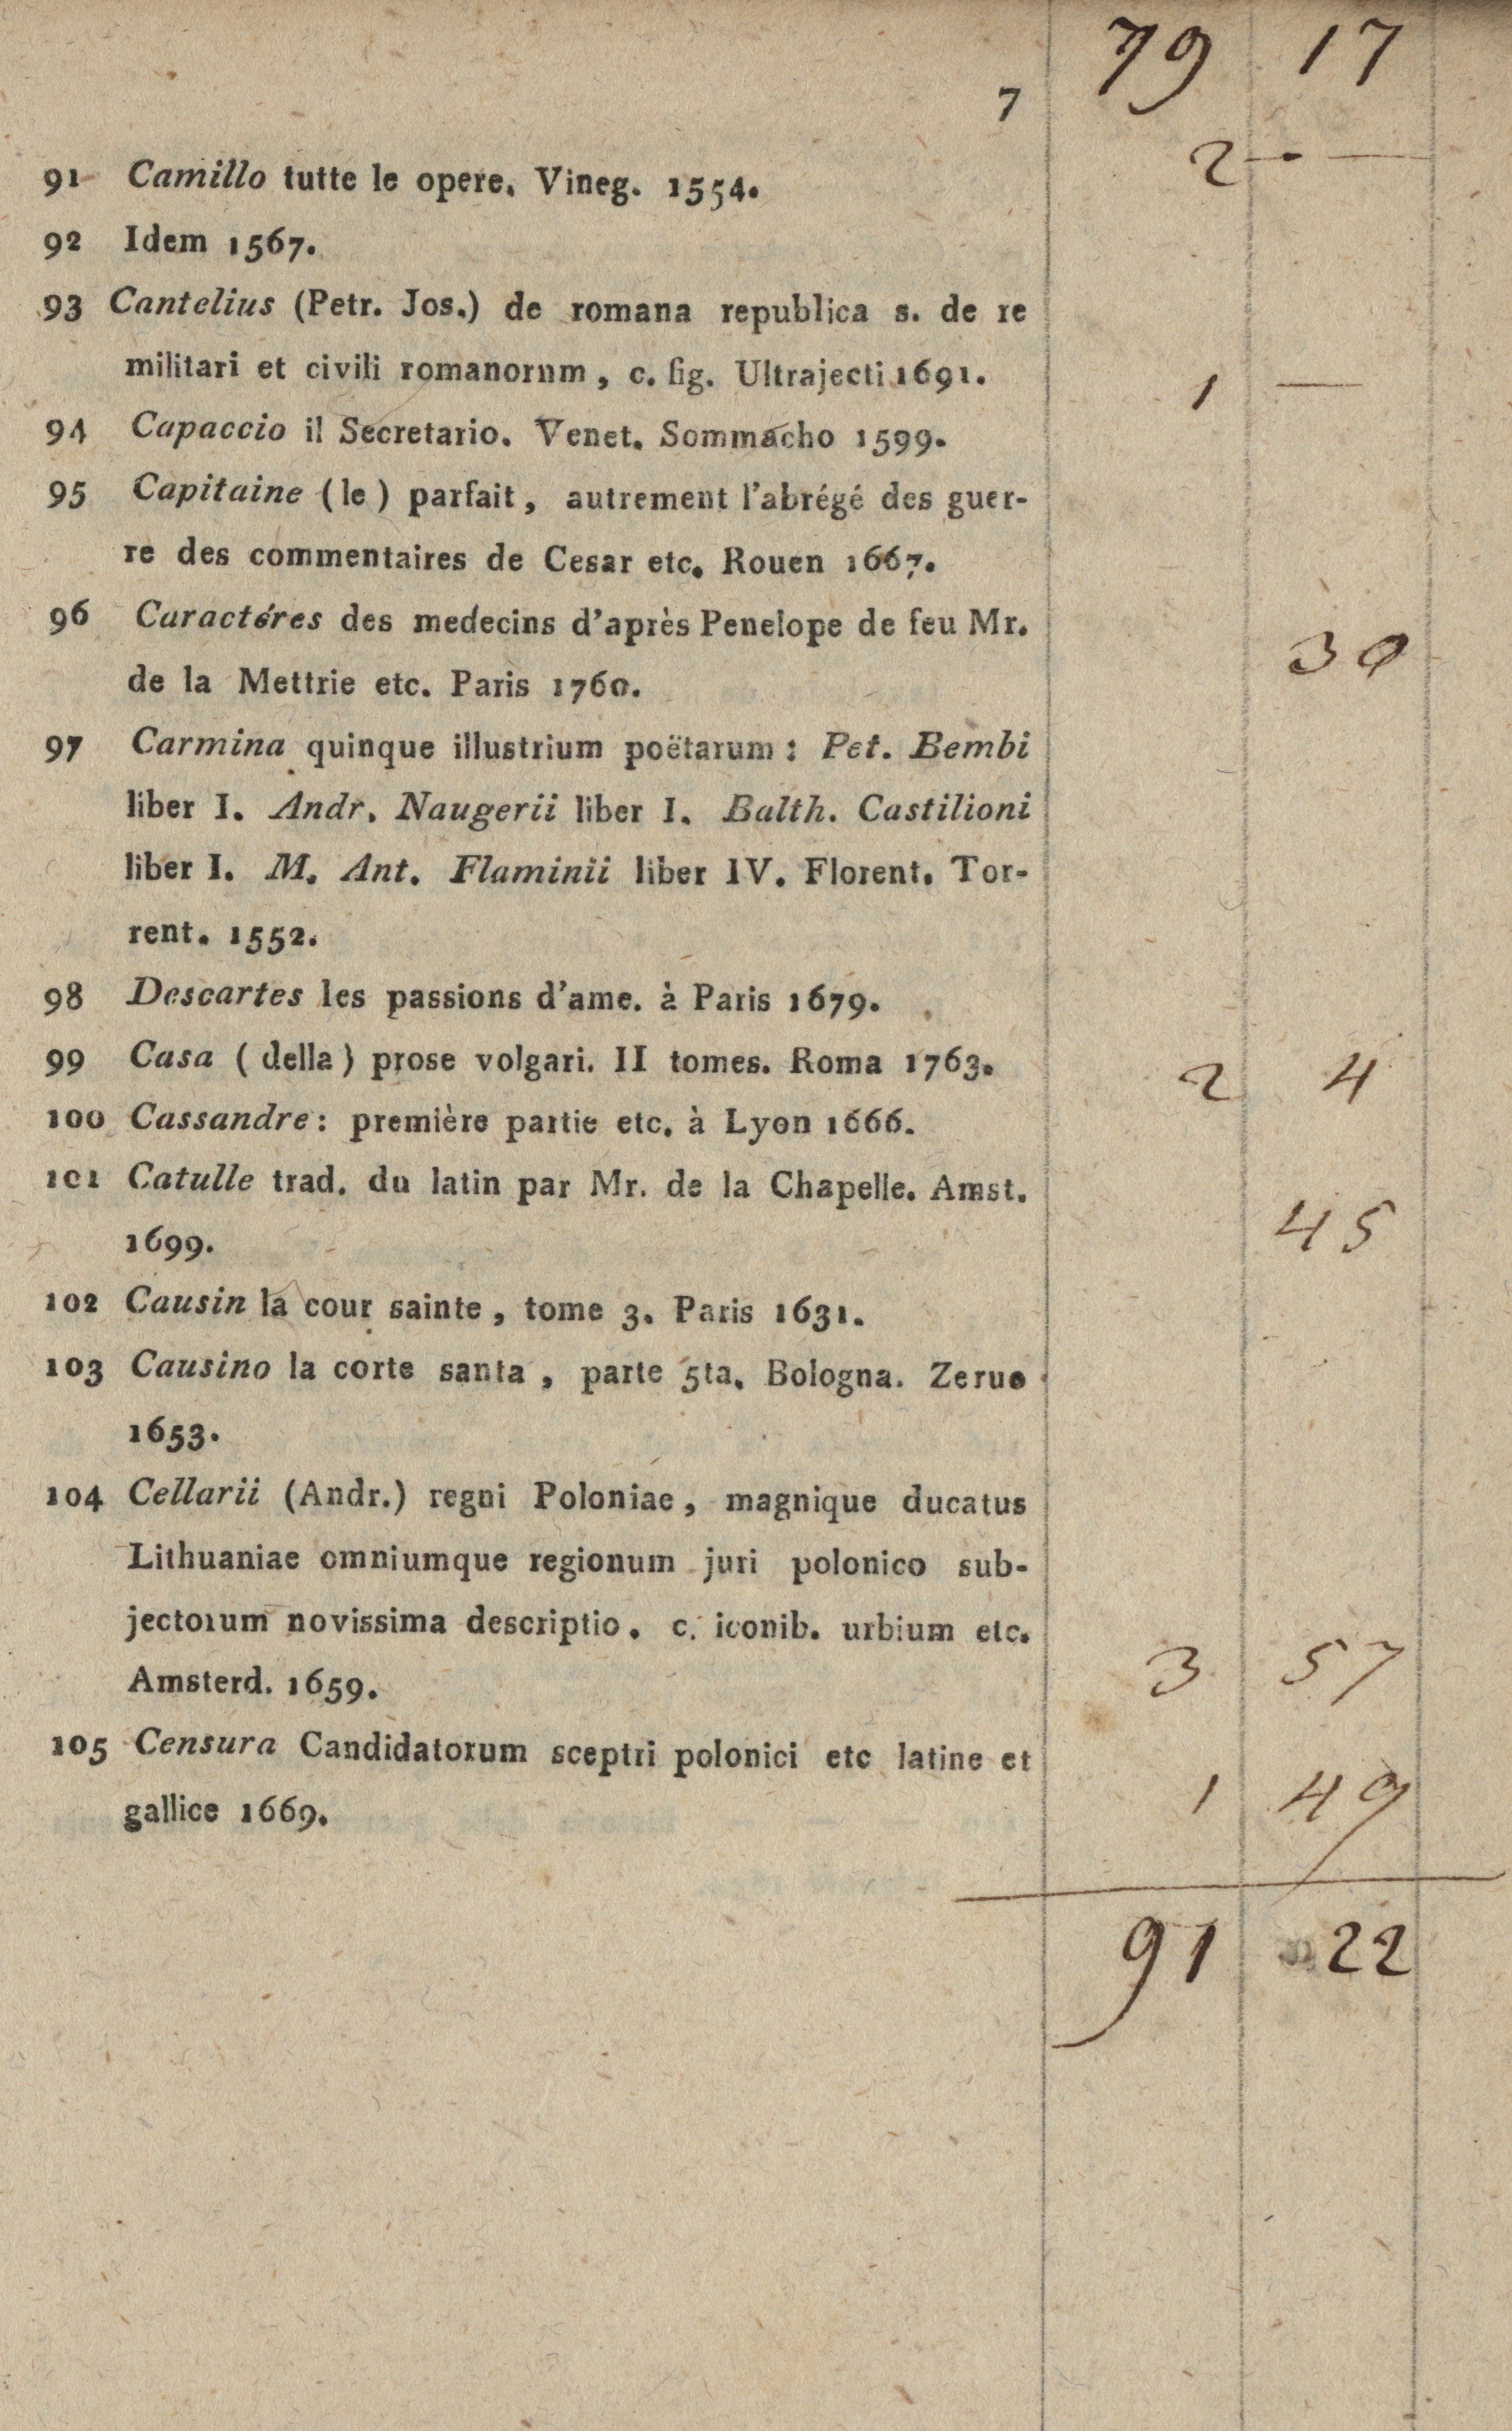 79 17
7
2 —
91 Camillo tutte le opere. Vineg. 1554.
92 Idem 1567.
93 Cantelius (Petr. Jos.) de romana republica s. de re
militari et civili romanornm, c. fig. Ultrajecti 1691.
1 —
94 Capaccio il Secretario. Venet. Sommacho 1599.
95 Capitaine (le) parfait, autrement l'abrégé des guer-
re des commentaires de Cesar etc. Rouen 1667.
96 Caractéres des medecins d'après Penelope de feu Mr.
30
de la Mettrie etc. Paris 1760.
97 Carmina quinque illustrium poëtarum: Pet. Bembi
liber I. Andr. Naugerii liber I. Balth. Castilioni
liber I. M. Ant. Flaminii liber IV. Florent. Tor-
rent. 1552.
98 Descartes les passions d'ame. à Paris 1679.
99 Casa (della) prose volgari. II tomes. Roma 1763.
2 4
100 Cassandre: première partie etc. à Lyon 1666.
101 Catulle trad. du latin par Mr. de la Chapelle. Amst.
1699.
45
102 Causin la cour sainte, tome 3. Paris 1631.
103 Causino la corte santa, parte 5ta. Bologna. Zeruo
1653.
104 Cellarii (Andr.) regni Poloniae, magnique ducatus
Lithuaniae omniumque regionum juri polonico sub-
jectorum novissima descriptio. c. iconib. urbium etc.
Amsterd. 1659.
3 57
105 Censura Candidatorum sceptri polonici etc latine et
gallice 1669.
1 49
91 22